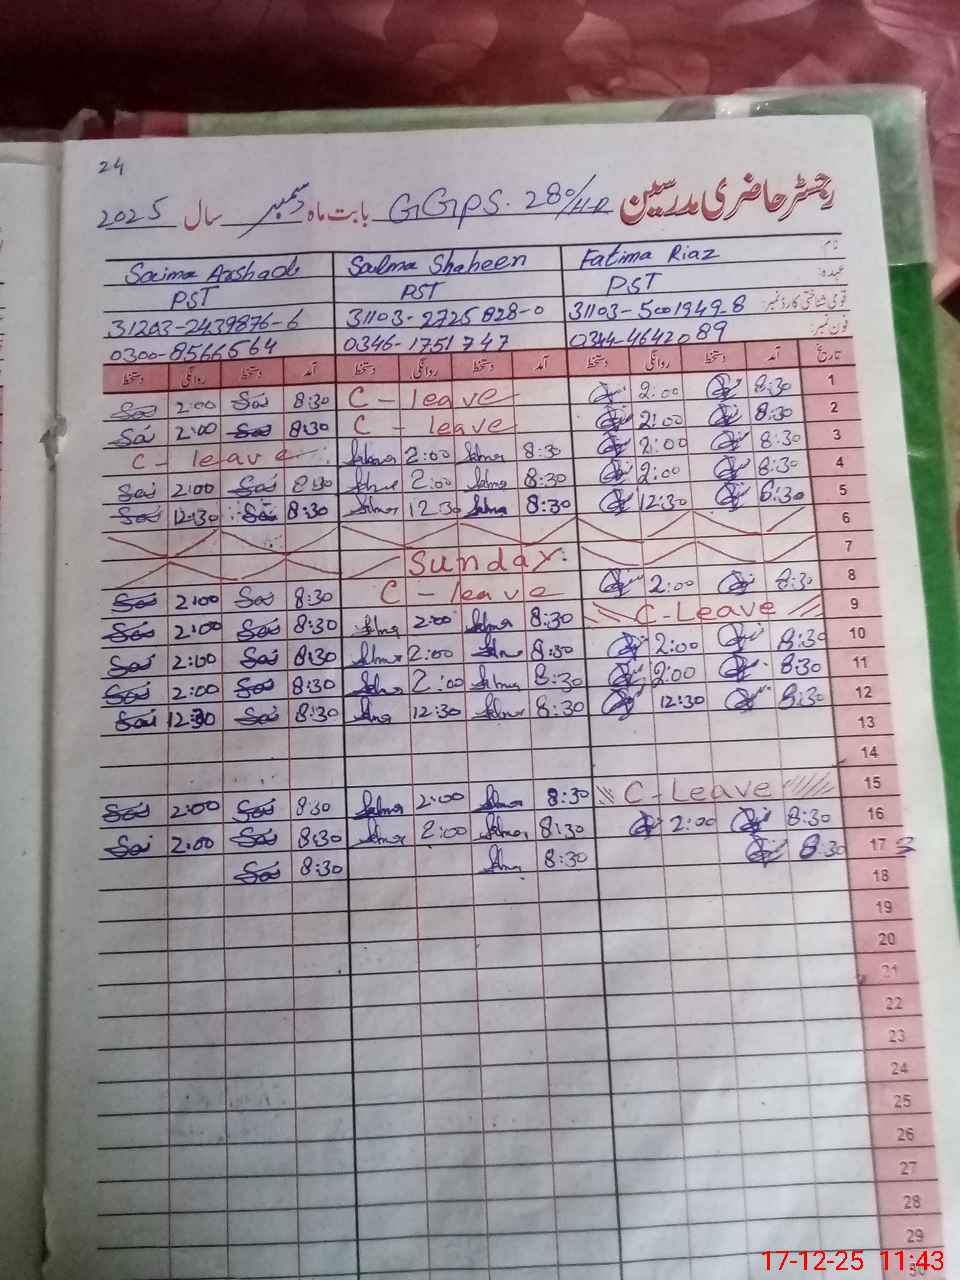 24
رجسٹر حاضری مدرسین GGPS. 28%/H-R بابت ماہ دسمبر سال 2025
نام Fatima Riaz Salma Shaheen Saima Arshad
عہدہ: PST PST PST
قومی شناختی کارڈ نمبر: 31103-5001949-8 31103-2725828-0 31203-2439876-6
فون نمبر: 0344-4642089 0346-1751747 0300-8566564
تاریخ آمد دستخط روانگی دستخط آمد دستخط روانگی دستخط آمد دستخط روانگی دستخط
1 8:30 2:00 C - leave 8:30 Sai 2:00 Sai
2 8:30 2:00 C - leave 8:30 Sai 2:00 Sai
3 8:30 2:00 8:30 Salma 2:00 Salma C - leave
4 8:30 2:00 8:30 Salma 2:00 Salma 8:30 Sai 2:00 Sai
5 8:30 12:30 8:30 Salma 12:30 Salma 8:30 Sai 12:30 Sai
6
7 Sunday.
8 8:30 2:00 C - leave 8:30 Sai 2:00 Sai
9 C-Leave 8:30 Salma 2:00 Salma 8:30 Sai 2:00 Sai
10 8:30 2:00 8:30 Salma 2:00 Salma 8:30 Sai 2:00 Sai
11 8:30 2:00 8:30 Salma 2:00 Salma 8:30 Sai 2:00 Sai
12 8:30 12:30 8:30 Salma 12:30 Salma 8:30 Sai 12:30 Sai
13
14
15 C-Leave 8:30 Salma 2:00 Salma 8:30 Sai 2:00 Sai
16 8:30 2:00 8:30 Salma 2:00 Salma 8:30 Sai 2:00 Sai
17 8:30 8:30 Salma 8:30 Sai
18
19
20
21
22
23
24
25
26
27
28
29
30
17-12-25 11:43